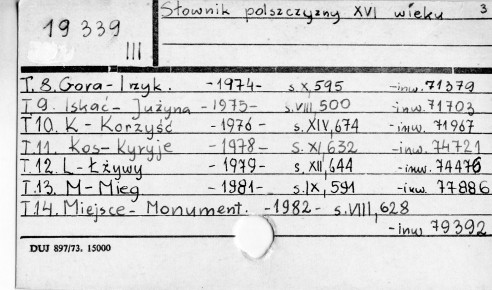 Słownik polszczyzny XVI wieku 3
19 339
III
T. 8. Gora - Irzyk. - 1974 - s. X, 595 - inw. 71379
T 9. Iskać - Jużyna - 1975 - s. VIII, 500 - inw. 71703
T 10. K - Korzyść - 1976 - s. XIV, 674 - inw. 71967
T 11. Kos - Kyryje - 1978 - s. XI, 632 - inw. 74721
T. 12. L - Łżywy - 1979 - s, XII, 644 - inw. 74476
T. 13. M - Mieg - 1981 - s. IX, 591 - inw. 77886
T. 14. Miejsce - Monument. - 1982 - s. VIII, 628
- inw 79392
DUJ 897/73. 15000